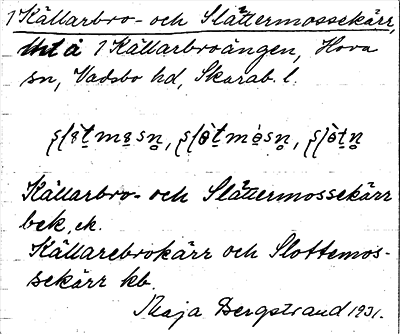 1 Källarbro- och Slåttermossekärr,
1 Källarbroängen, Hova
sn, Vadsbo hd, Skarab. l.
Källarbro- och Slåttermossekärr
bek, ek.
Källarebrokärr och Slottemos-
sekärr kb.
Maja Bergstrand 1931.